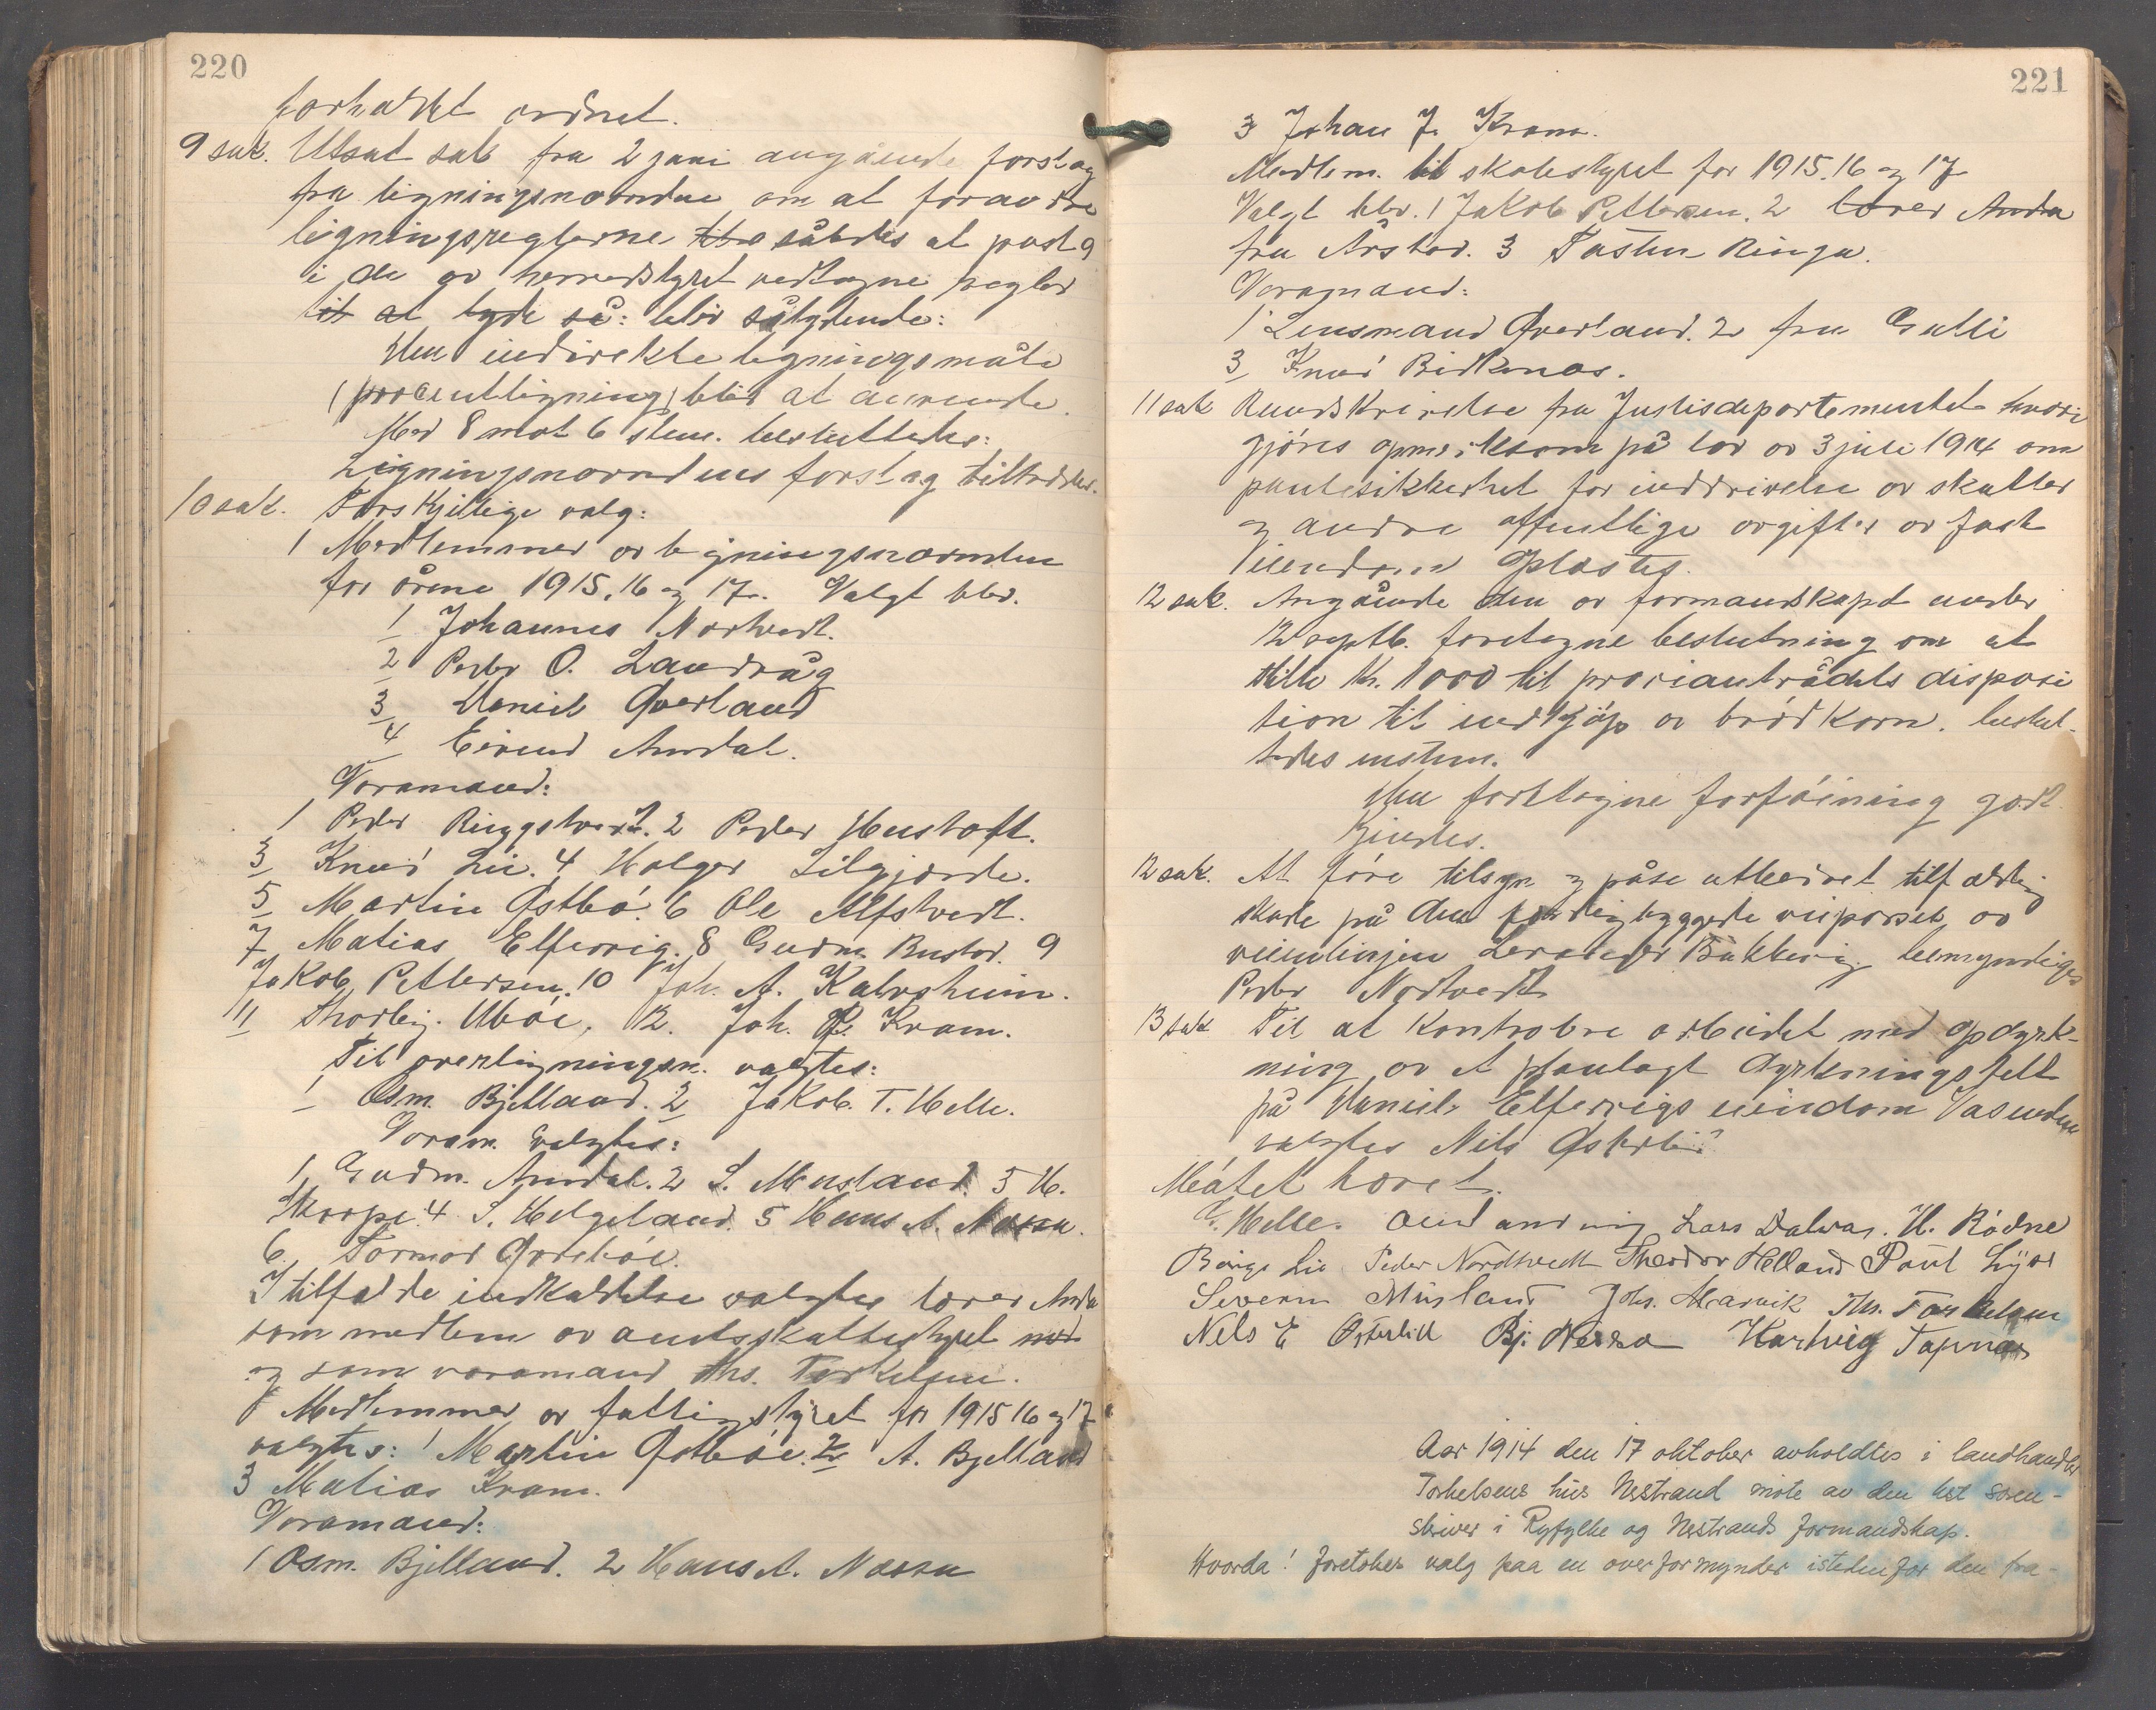 220
forholdet ordnet.
9 sak. Utsat sak fra 2 juni angående forslag
fra ligningsnævnden om at forandre
ligningsreglerne således at post 9
i de av herredstyret vedtagne regler
til at lyde så: blir sålydende:
Den indirekte ligningsmåte
(procentligning) blir at anvende.
Med 8 mot 6 stem. besluttedes:
Ligningsnævndens forslag tiltrædes.
10 sak. Forskjellige valg:
1 Medlemmer av ligningsnævnden
for årene 1915, 16 og 17. Valgt blev.
1 Johannes Nortvedt.
2 Peder O. Landråg
3 Daniel Qverland
4 Eivind Amdal.
Varamænd:
1 Peder Ringstvedt. 2 Peder Hustoft.
3 Knud Lie. 4 Holger Lilgjærde.
5 Martin Østbø. 6 Ole Alfstvedt.
7 Matias Elfevig. 8 Gudm. Bustad. 9
Jakob Pettersen. 10 Joh. A. Kalvsheim.
11 Thorbj. Ubøe, 12. Joh. J. Kram.
Til overligningsn. valgtes:
1 Osm. Bjelland. 2 Jakob T. Helle.
Varam. valgtes:
1 Gudm. Amdal. 2 S. Musland. 3 H.
Skorpe. 4 S. Helgeland. 5 Hans A. Nessa.
6 Tormod Qvrebøe.
I tilfælde indkaldelse valgtes lærer Anda
som medlem av amtsskattestyret
og som varamand Ths. Torkelsen.
Medlemmer av fattigstyret for 1915 16 og 17
valgtes: 1 Martin Østbøe. 2 A. Bjelland
3 Matias Kram.
Varamænd:
1 Osm. Bjelland. 2 Hans A. Nessa
221
3 Johan J. Kram.
Medlem. til skolestyret for 1915. 16 og 17
Valgt blev. 1 Jakob Pettersen, 2 lærer Anda
fru Årstad. 3 Tosten Ringa.
Varamænd:
1 Lensmand Qverland. 2 fru Gulli
3 Knud Birkenæs.
11 sak Rundskrivelse fra Justisdepartementet hvori
gjøres opmerksom på lov av 3 juli 1914 om
pantesikkerhet for inddrivelse av skatter
og andre offentlige avgifter av fast
eiendom oplæstes.
12 sak. Angående den av formandskapet under
12 septb. foretagne beslutning om at
stille kr. 1000 til proviantrådets disposi
tion til indkjøp av brødkorn. beslut-
tedes enstem.
Den foretagne forføining god-
kjendes.
12 sak. At føre tilsyn og påse utbedret tilfældig
skade på den færdigbyggede veiparsel av
veienlinjen Bakkevig bemyndiges
Peder Nortvedt
13 sak Til at kontrolere arbeidet med opdyrk-
ning av et planlagt dyrkningsfelt
på Daniel Elfevigs eiendom Vasenden
valgtes Nils Østerlid
Møtet hævet.
J. Helle. Lars Dalvas. H. Rødne
Børge Lie Peder Nordtvedt Theodor Helland Poul Lyse
Severin Musland Johs. Marvik Ths. Torkelsen
Nels E Østerlid Bj. Nessa Hartvig Tapnæs
Aar 1914 den 17 oktober avholdtes i landhandler
Torkelsens hus Nestrand møte av den kst. soren-
skriver i Ryfylke og Nestrands formandskap.
Hvorda! foretokes valg paa en overformynder istedenfor den fra-